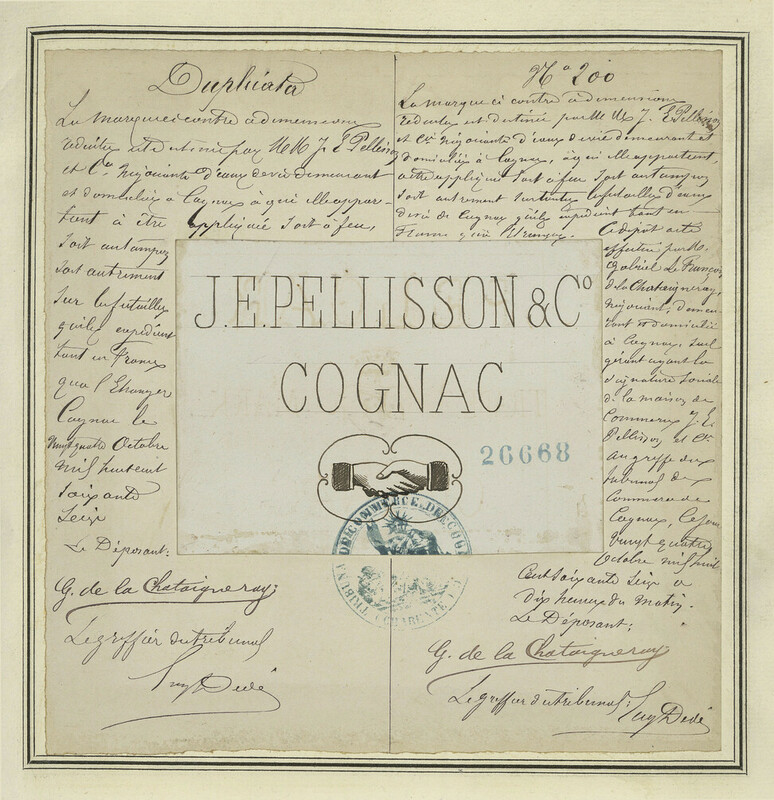 Duplicata
La marque ci contre à dimensions
réduites est destinée par MM J. E. Pellisson
et Cie Négociants d'eaux de vie demeurant
et domiciliés à Cognac à qui elle appar-
tient à être appliquée soit à feu,
soit au tampon
soit autrement
sur les futailles
qu'ils expédient
tant en France
qu'à l'Etranger
Cognac le
vingt quatre Octobre
mil huit cent
soixante
seize
Le Déposant:
G. de la Chataigneray
Le greffier du tribunal
No 200
La marque ci contre à dimensions
réduites est destinée par MM J. E Pellisson
et Cie Négociants d'eaux de vie demeurant et
domiciliés à Cognac, à qui elle appartient,
à être appliquée soit à feu soit au tampon
soit autrement sur toutes les futailles d'eaux
de vie de Cognac qu'ils expédient tant en
France qu'à l'Etranger.
Le dépôt a été
effectué par M.
Gabriel Le François
de la Chataigneray,
négociant, demeu
rant et domicilié
à Cognac, seul
gérant ayant la
signature sociale
de la maison de
Commerce J. E.
Pellisson et Cie
au greffe du
tribunal de
Commerce de
Cognac, ce jour
vingt quatre
Octobre mil huit
Cent soixante seize à
dix heures du matin.
Le Déposant:
G. de la Chataigneray
Le greffier du tribunal:
J.E. PELLISSON & Co
COGNAC
26668
TRIBUNAL DE COMMERCE DE COGNAC
(CHARENTE)